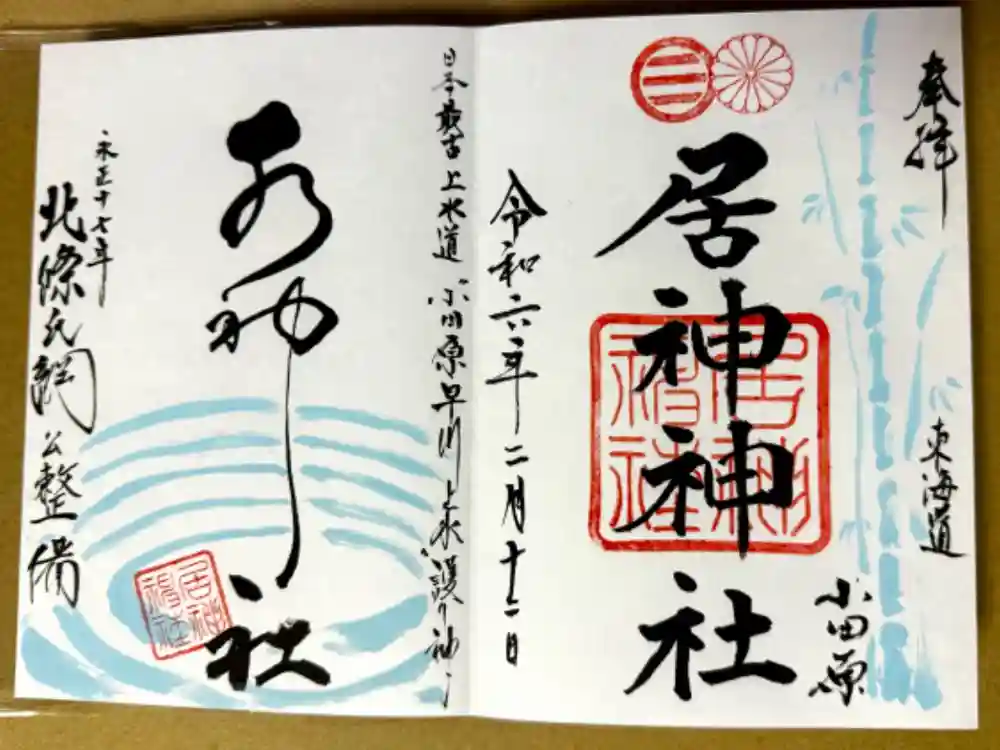 奉拝
東海道
小田原
居神神社
令和六年二月十二日
日本最古上水道 小田原早川上水護り神
水神社
永正十七年
北條氏綱公整備
居神神社